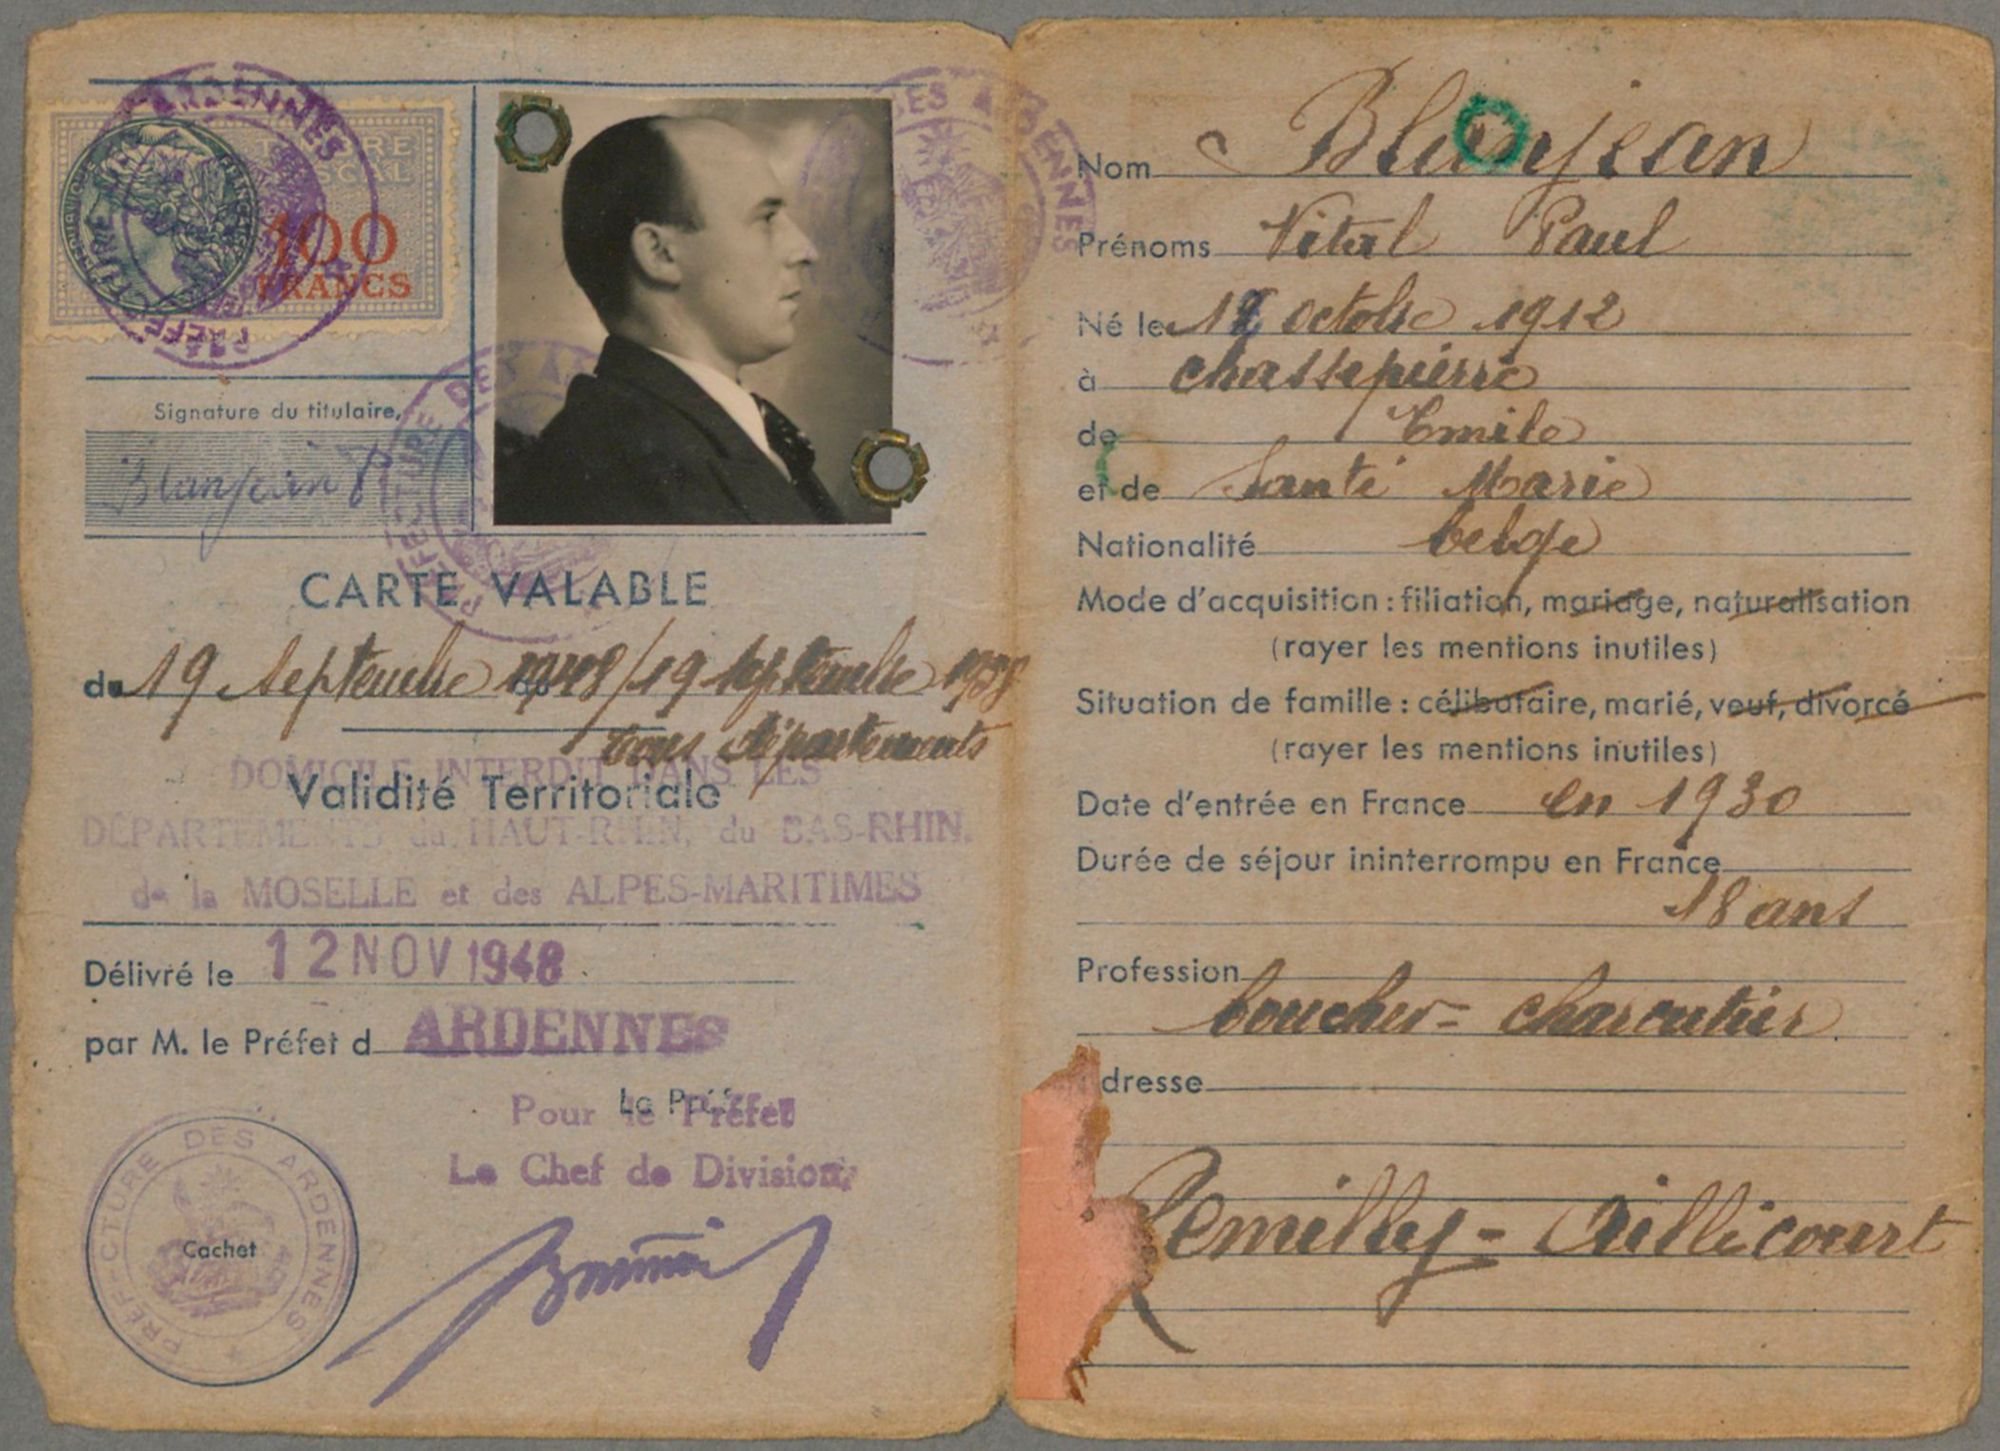 PRÉFECTURE DES ARDENNES
TIMBRE FISCAL
100
FRANCS
Signature du titulaire,
Blanjean
CARTE VALABLE
du 19 Septembre 1948/19 Septembre 1958
tous départements
Validité Territoriale
DOMICILE INTERDIT DANS LES
DÉPARTEMENTS du HAUT-RHIN, du BAS-RHIN.
de la MOSELLE et des ALPES-MARITIMES
Délivré le 12 NOV 1948
par M. le Préfet d ARDENNES
Pour le Préfet
Le Chef de Division,
PRÉFECTURE DES ARDENNES
Cachet
Nom Blanjean
Prénoms Vital Paul
Né le octobre 1912
à chassepierre
de Emile
et de Santé Marie
Nationalité belge
Mode d'acquisition : filiation, mariage, naturalisation
(rayer les mentions inutiles)
Situation de famille : célibataire, marié, veuf, divorcé
(rayer les mentions inutiles)
Date d'entrée en France en 1930
Durée de séjour ininterrompu en France
18 ans
Profession
boucher-charcutier
dresse
Remilly-Aillicourt